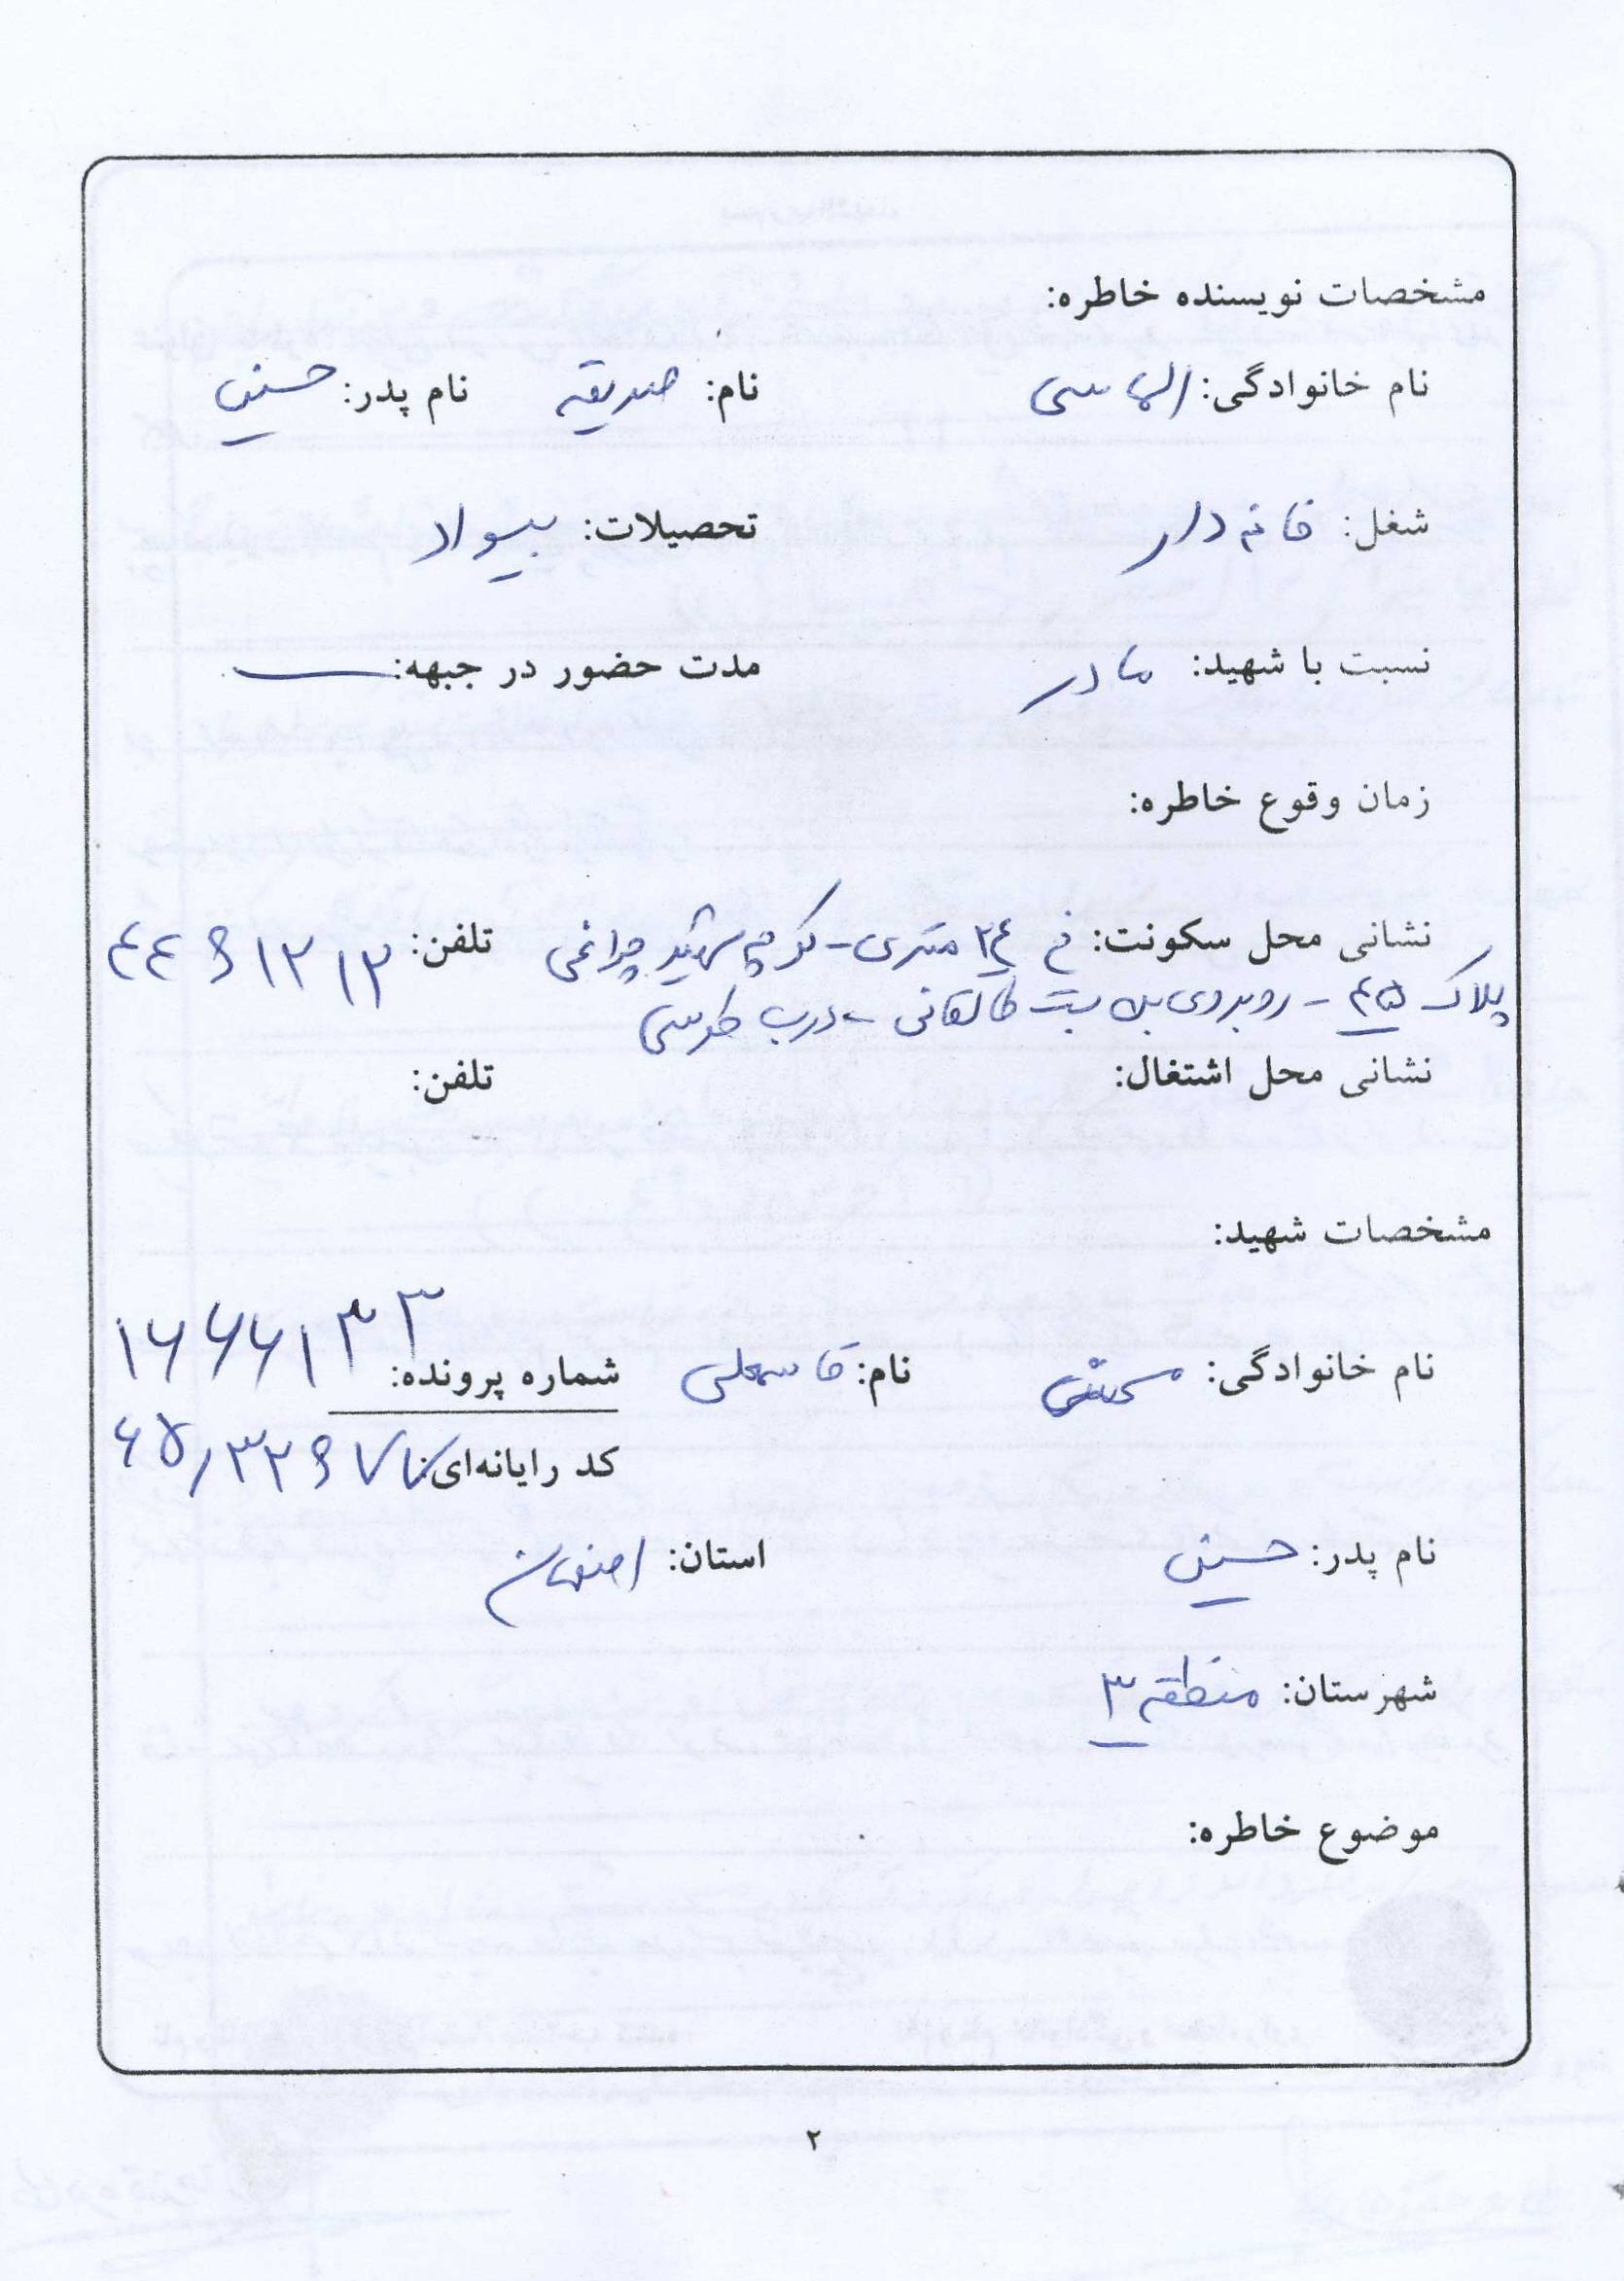 مشخصات نویسنده خاطره:
نام خانوادگی: الماسی نام: صدیقه نام پدر: حسین
شغل: خانه دار تحصیلات: بیسواد
نسبت با شهید: مادر مدت حضور در جبهه: ــ
زمان وقوع خاطره:
نشانی محل سکونت: خ ۲۴ متری - کوچه شهید چراغی تلفن: ۴۴۶۱۲۱۳
پلاک ۴۵ - روبروی بن بست طالقانی - درب طوسی
نشانی محل اشتغال: تلفن:
مشخصات شهید:
نام خانوادگی: نام: قاسمعلی شماره پرونده: ۱۶۶۶۱۳۳
کد رایانه‌ای: ۶۵٫۳۲۶۷۷
نام پدر: حسین استان: اصفهان
شهرستان: منطقه ۳
موضوع خاطره:
۲